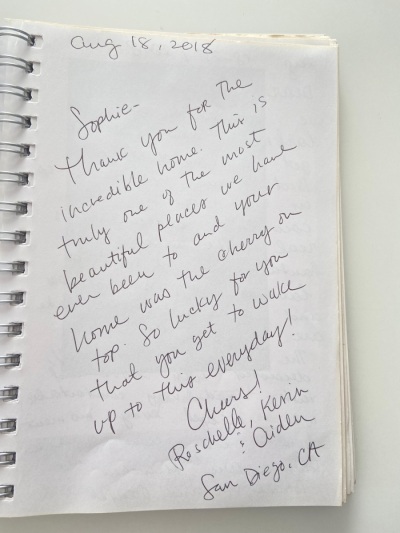 Aug 18, 2018
Sophie-
Thank you for the
incredible home. This is
truly one of the most
beautiful places we have
ever been to and your
home was the cherry on
top. So lucky for you
that you get to wake
up to this everyday!
Cheers!
Roschelle, Kevin
& Aiden
San Diego, CA